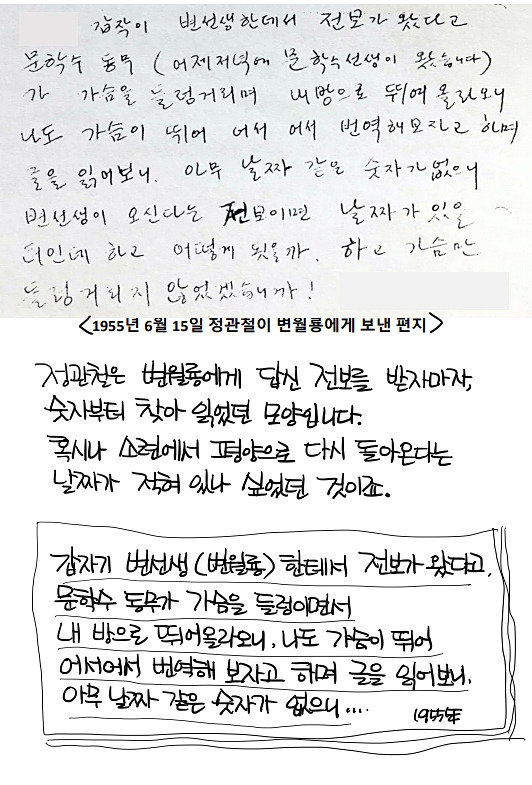 갑작이 변선생한데서 전보가 왔다고
문학수 동무 (어제저녁에 문학수선생이 왔습니다)
가 가슴을 들렁거리며 내방으로 뛰여 올라오니
나도 가슴이 뛰여 어서 어서 번역해보자고 하며
글을 읽어보니. 아무 날짜 같은 숫자가없으니
변선생이 오신다는 전보이면 날짜가 있을
터인데 하고 어떻게 됬을까. 하고 가슴만
들렁거리지 않었겠습니까!
<1955년 6월 15일 정관철이 변월룡에게 보낸 편지>
정관철은 변월룡에게 답신 전보를 받자마자,
숫자부터 찾아 읽었던 모양입니다.
혹시나 소련에서 평양으로 다시 돌아온다는
날짜가 적혀 있나 싶었던 것이죠.
갑자기 변선생(변월룡)한테서 전보가 왔다고,
문학수 동무가 가슴을 들렁이면서
내 방으로 뛰어올라오니, 나도 가슴이 뛰어
어서어서 번역해 보자고 하며 글을 읽어보니,
아무 날짜 같은 숫자가 없으니....
1955年